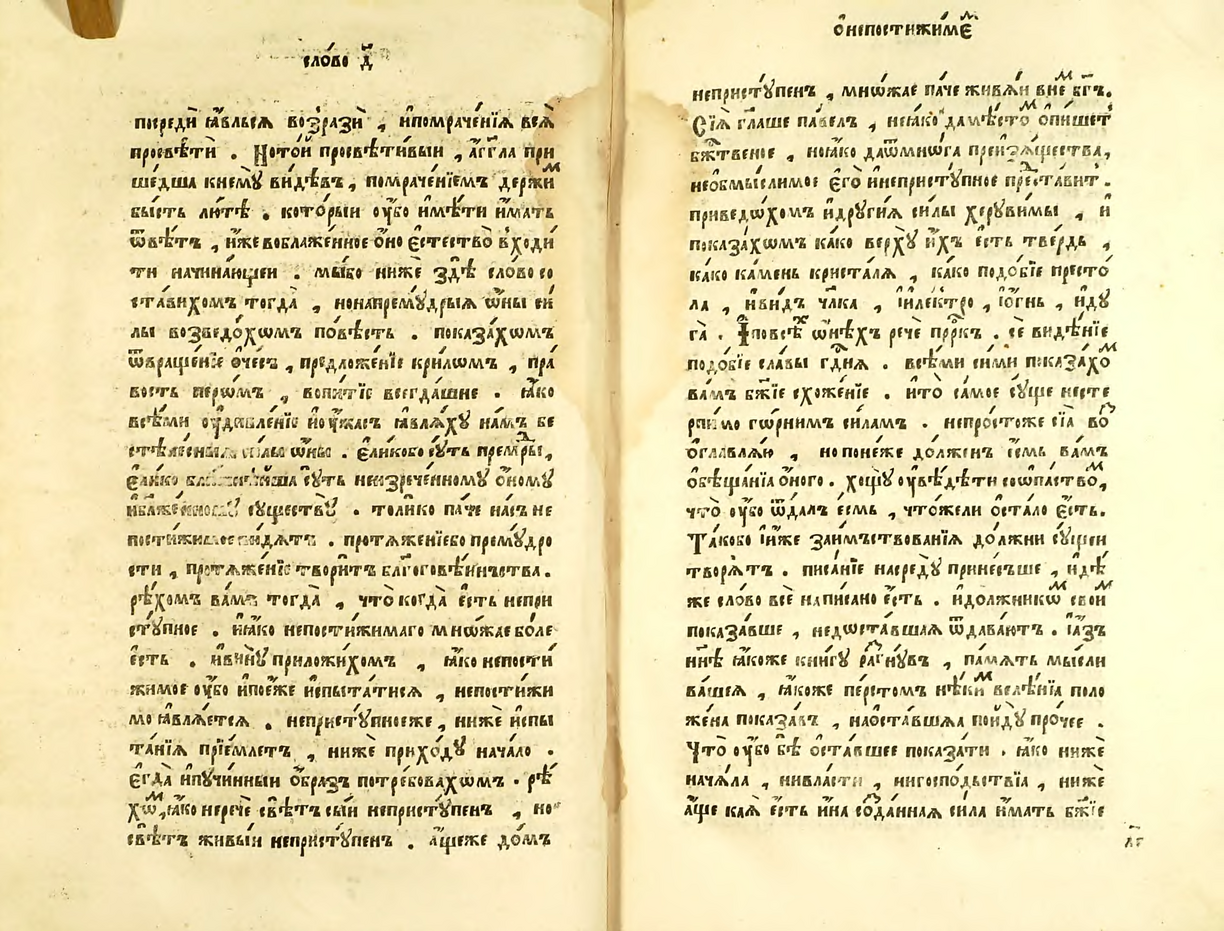 сло́во д҃
посредѝ ꙗ҆́вльсѧ возразѝ , и҆помраче́нїѧ всѧ̀
просвѣтѝ . Нꙋто́й просвѣти́вый , а҆́гг҃ла при
ше́дша кнемꙋ̀ ви́дѣвъ , помраче́нїемъ держи́ᷟ
бы́сть лю́тѣ . кото́рый оу҆̀бо и҆мѣ́ти и҆́мать
ѿвѣ́тъ , и҆́же воблаже́нное ѻ҆но̀ є҆стество̀ входи́
ти начина́ющеи . мы́бо нижѐ здѣ̀ сло́во со
ста́вихомъ тогда̀ , нонапремꙋ́дрыѧ ѡ҆́ны си́
лы возведо́хомъ по́вѣсть . показа́хомъ
ѿвраще́нїе ѻ҆че́съ , предложе́нїе кри́лѡмъ , пра́
вость пе́рѡмъ , вопитїѐ всегда́шне . ꙗ҆́ко
всѣ́ми оу҆дивле́нїе и҆оу҆́жасъ ꙗ҆влѧ́хꙋ на́мъ бе
стѣле́сныѧ си́лы ѡ҆́ны . є҆ли́кобо сꙋ́ть премⷣры ,
є҆ли́ко сꙋ́ть неизрече́нномꙋ ѻ҆́номꙋ
и҆блаже́нномꙋ сꙋществꙋ̀ . толи́ко па́че на́съ не
постижи́мое ви́дѧтъ . протѧже́нїебо премꙋ́дро
сти , протѧже́нїе твори́тъ благоговѣ́инъства .
рѣ́хомъ ва́мъ тогда̀ , что̀ когда̀ є҆́сть непри
стꙋ́пное . и҆ꙗ҆́ко непостижи́маго мно́жае бо́ле
є҆́сть . и҆винꙋ̀ приложи́хомъ , ꙗ҆́ко непости
жи́мое оу҆̀бо и҆пое́же и҆спыта́тисѧ , непостижи́
мо ꙗ҆влѧ́етсѧ . непристꙋ́пноеже , нижѐ и҆спы
та́нїѧ прїе́млетъ , нижѐ прихо́дꙋ нача́ло .
є҆гда̀ и҆пꙋчи́нный ѻ҆́бразъ потре́бовахомъ . рѣ́
хѡᷟ , ꙗ҆́ко нерѐче свѣ́тъ сы́й непристꙋ́пенъ , но
свѣ́тъ живы́й непристꙋ́пенъ . а҆́щеже до́мъ
ѻ҆непостижи́мѣᷟ
непристꙋ́пенъ , мно́жае па́че живы́й вне́ᷟ бг҃ъ .
Сїѧ̀ гл҃аше па́велъ , неꙗ҆́ко да мѣ́стоᷟ ѻ҆пи́шетъ
бж҃твеное , ноꙗ҆́ко даѿмно́га преизѧ́щества ,
необмы́слимое є҆гѡ̀ и҆непристꙋ́пное предста́витъ .
приведо́хомъ и҆дрꙋгі́ѧ си́лы херꙋви́мы , и҆
показа́хомъ ка́ко верхꙋ̀ и҆́хъ є҆́сть тве́рдь ,
ка́ко ка́мень криста́лѧ , ка́ко подо́бїе престо́
ла , и҆ви́дъ чл҃ка , и҆иле́ктро , і҆ѻ҆́гнь , и҆дꙋ
га̀ . І҆повсѣ́хъ ѡ҆нѣ́хъ речѐ прⷪ҇ркъ . сѐ видѣ́нїе
подо́бїе сла́вы гдⷭ҇нѧ . всѣ́ми си́ми показа́хоᷟ
ва́мъ бж҃їе схоже́нїе . и҆то̀ самое сꙋ́ще несте
рпи́мо гѡ́рнимъ си́ламъ . непро́стоже сїѧ̀ во
ѻ҆главлѧ́ю , но поне́же до́лженъ є҆́смь ва́мъ
ѻ҆бѣща́нїѧ ѻ҆́ного . хощꙋ̀ оу҆вѣ́дѣти соѡпа́ствоᷟ ,
что̀ оу҆̀бо ѿда́лъ є҆́смь , что́жели ѻ҆ста́ло є҆́сть .
Та́кобо і҆и҆́же заимъствованїѧ до́лжни сꙋ́щеи
творѧ́тъ . писа́нїе насредꙋ̀ прине́съше , и҆дѣ́
же сло́во всѐ напи́сано є҆́сть . и҆должникѡ́ᷟ свои́ᷟ
показа́вше , недоста́вшаѧ ѿдаваю́тъ . і҆а҆́зъ
ни҃ѣ ꙗ҆́коже кни́гꙋ ра́згнꙋвъ , па́мѧть мы́сли
ва́шеѧ , ꙗ҆́коже персто́мъ нѣ́киᷟ велѣ́нїѧ поло
же́на показа́въ , наѻ҆ста́вшаѧ пойдꙋ̀ про́чее .
Что̀ оу҆̀бо бѣ̀ ѻ҆ста́вшее показа́ти . ꙗ҆́ко нижѐ
нача́ла , нивла́сти , нигоспо́дьствїа , нижѐ
а҆́ще ка́ѧ є҆́сть и҆́на созда́ннаѧ си́ла и҆́мать бж҃їе